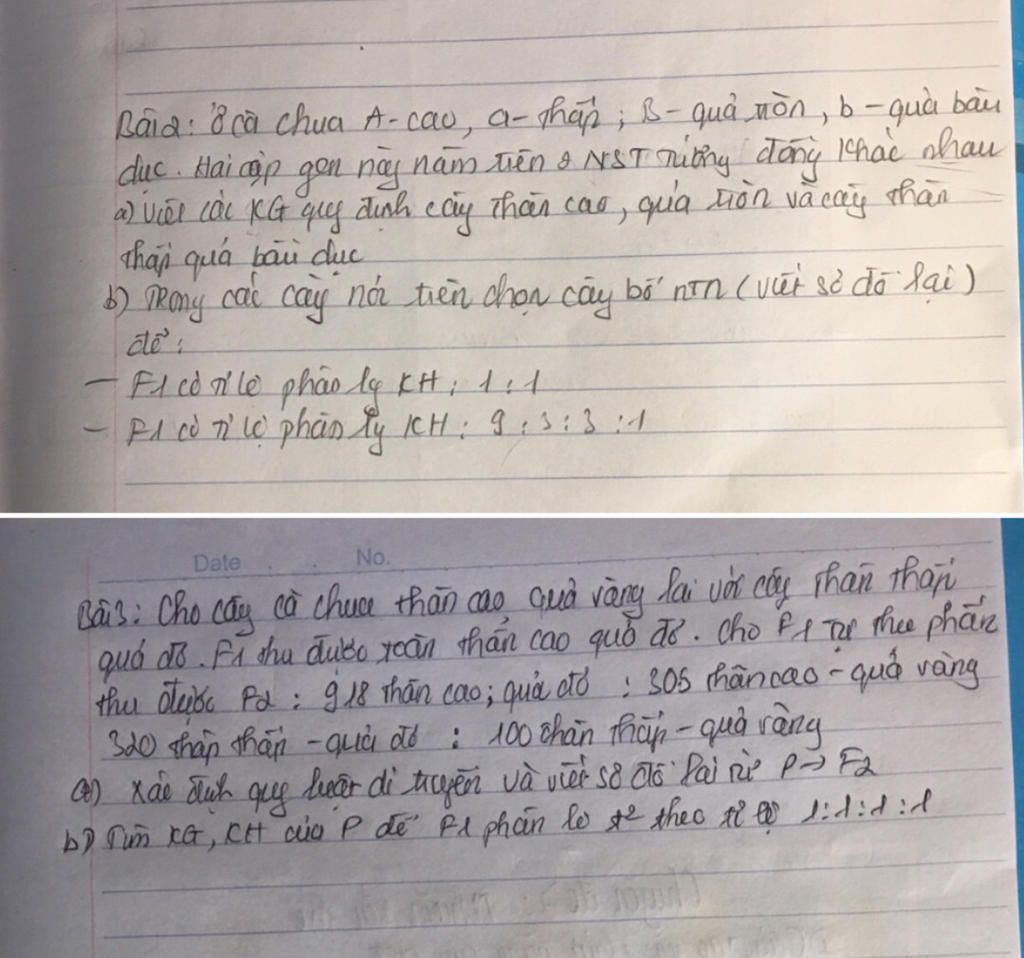 Bài 2: Ở cà chua A-cao, a-thấp; B-quả tròn, b-quả bầu
dục. Hai cặp gen này nằm trên 2 NST tương đồng khác nhau
a) Viết các KG quy định cây thân cao, quả tròn và cây thân
thấp quả bầu dục
b) Trong các cây nói trên chọn cây bố ntn (viết sơ đồ lại)
để:
- F1 có tỉ lệ phân ly KH: 1:1
- F1 có tỉ lệ phân ly KH: 9:3:3:1
Date No.
Bài 3: Cho cây cà chua thân cao quả vàng lai với cây thân thấp
quả đỏ. F1 thu được toàn thân cao quả đỏ. Cho F1 tự thụ phấn
thu được F2: 918 thân cao; quả đỏ : 305 thân cao - quả vàng
320 thân thấp - quả đỏ : 100 thân thấp - quả vàng
a) Xác định quy luật di truyền và viết sơ đồ lai từ P→F2
b) Tìm KG, KH của P để F1 phân ly theo tỉ lệ 1:1:1:1